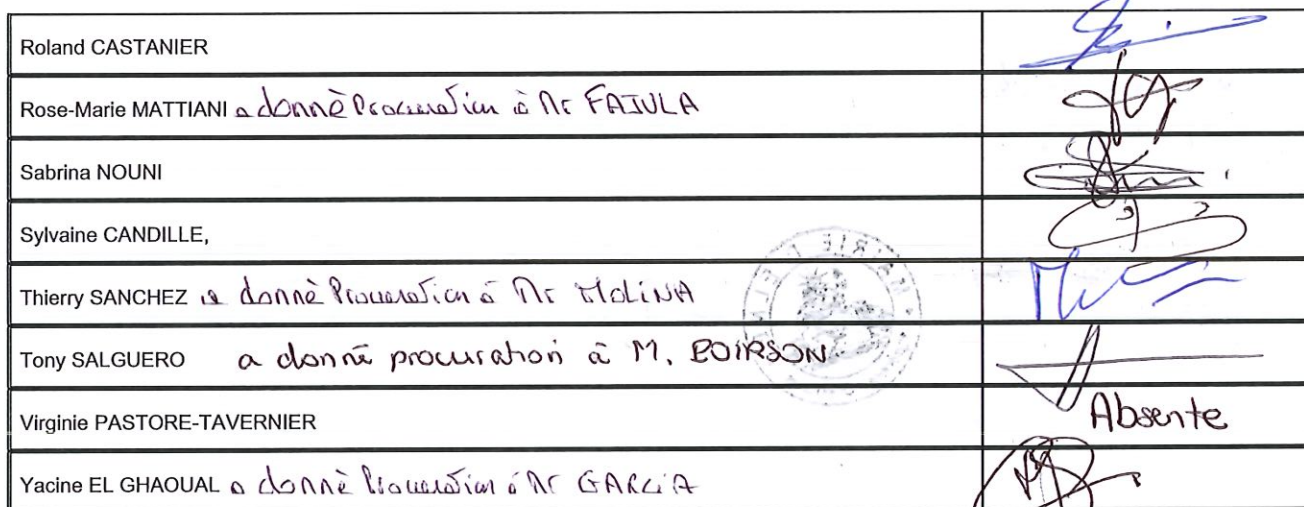 Roland CASTANIER
Rose-Marie MATTIANI a donné Procuration à Mr FAJULA
Sabrina NOUNI
Sylvaine CANDILLE,
Thierry SANCHEZ a donné Procuration à Mr MOLINA
Tony SALGUERO a donné procuration à M. BOIRSON
Virginie PASTORE-TAVERNIER Absente
Yacine EL GHAOUAL a donné Procuration à Mr GARCIA